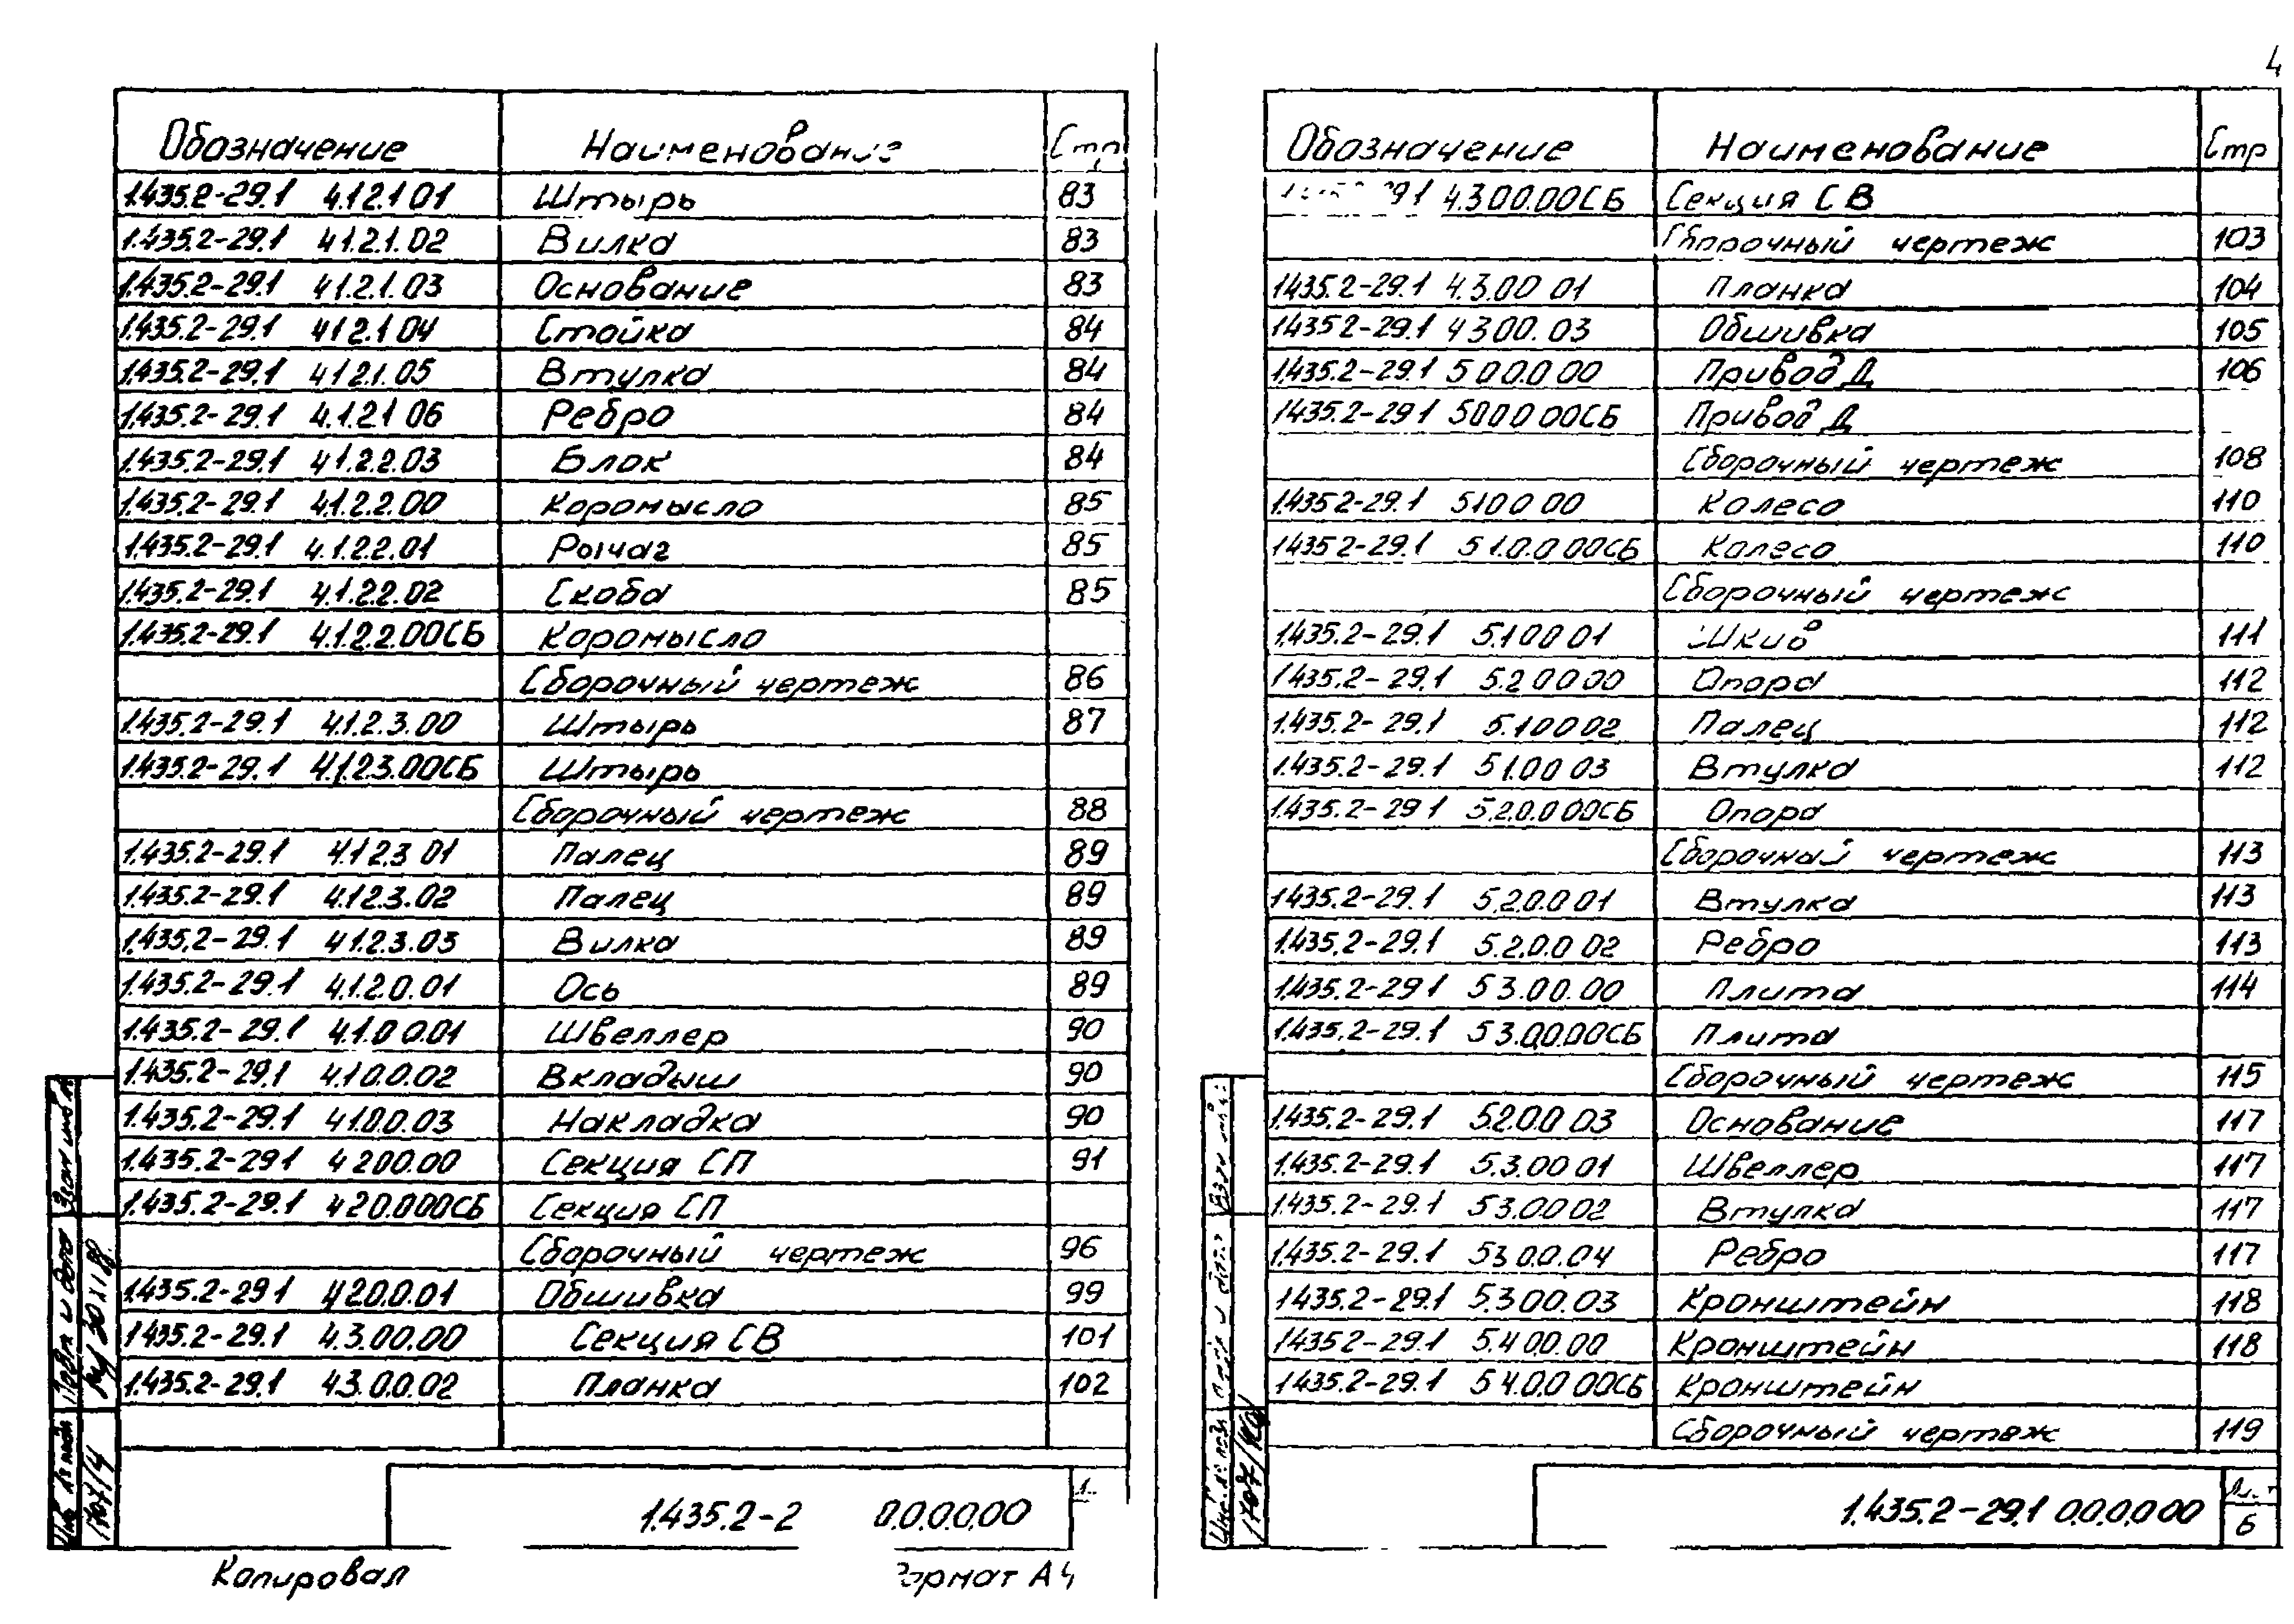 4
Обозначение Наименование Стр
1.435.2-29.1 4.1.2.1 01 Штырь 83
1.435.2-29.1 4.1.2.1.02 Вилка 83
1.435.2-29.1 4.1.2.1.03 Основание 83
1.435.2-29.1 4.1 2.1 04 Стойка 84
1.435.2-29.1 4.1 2.1.05 Втулка 84
1.435.2-29.1 4.1.2.1 06 Ребро 84
1.435.2-29.1 4.1.2.2.03 Блок 84
1.435.2-29.1 4.1.2.2.00 Коромысло 85
1.435.2-29.1 4.1.2.2.01 Рычаг 85
1.435.2-29.1 4.1.2.2.02 Скоба 85
1.435.2-29.1 4.1.2.2.00СБ Коромысло
Сборочный чертеж 86
1.435.2-29.1 4.1.2.3.00 Штырь 87
1.435.2-29.1 4.1.2.3.00СБ Штырь
Сборочный чертеж 88
1.435.2-29.1 4.1 2.3 01 Палец 89
1.435.2-29.1 4.1 2.3.02 Палец 89
1.435.2-29.1 4.1.2.3.03 Вилка 89
1.435.2-29.1 4.1.2.0.01 Ось 89
1.435.2-29.1 4.1.0 0.01 Швеллер 90
1.435.2-29.1 4.1 0.0.02 Вкладыш 90
1.435.2-29.1 4.1.0.0.03 Накладка 90
1.435.2-29 1 4 2 0 0.00 Секция СП 91
1.435.2-29.1 4 2 0.0 00СБ Секция СП
Сборочный чертеж 96
1.435.2-29 1 4 2 0.0.01 Обшивка 99
1.435.2-29.1 4.3.00.00 Секция СВ 101
1.435.2-29.1 4.3.0.0.02 Планка 102
1.435.2-2 0.0.0.0.00
Копировал
Обозначение Наименование Стр
4.3 0 0.00СБ Секция СВ
Сборочный чертеж 103
1435.2-29 1 4.3.00 01 Планка 104
1435 2-29.1 4 3 00. 03 Обшивка 105
1435.2-29.1 5 0 0.0 00 Привод Д 106
1435.2-29 1 5 0 0 0 00СБ Привод Д
Сборочный чертеж 108
1.435 2-29.1 5 1 0 0 00 Колесо 110
1435 2-29.1 5 1.0.0 00СБ Колесо 110
Сборочный чертеж
1.435.2-29.1 5.1 00 01 Шкив 111
1435.2-29.1 5.2 0 0 00 Опора 112
1.435.2-29.1 5.1 0 0 02 Палец 112
1.435.2-29.1 5 1.00 03 Втулка 112
1.435.2-29 1 5.2.0.0 00СБ Опора
Сборочный чертеж 113
1.435.2-29.1 5.2.0.0 01 Втулка 113
1.435.2-29.1 5.2.0.0 02 Ребро 113
1.435.2-29 1 5 3.00.00 Плита 114
1.435.2-29.1 5 3.0.0.00СБ Плита
Сборочный чертеж 115
1.435.2-29.1 5.2.0 0 03 Основание 117
1.435.2-29.1 5.3.00 01 Швеллер 117
1.435.2-29.1 5 3.00 02 Втулка 117
1.435.2-29.1 5 3 0.0.04 Ребро 117
1435.2-29.1 5.3 00.03 Кронштейн 118
1435 2-29.1 5.4 00.00 Кронштейн 118
1.435.2-29.1 5 4.0.0 00СБ Кронштейн
Сборочный чертеж 119
1.435.2-29.1 0.0.0.0 00
6